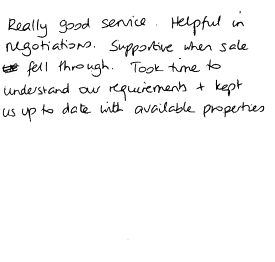 Really good service. Helpful in
negotiations. Supportive when sale
fell through. Took time to
understand our requirements + kept
us up to date with available properties